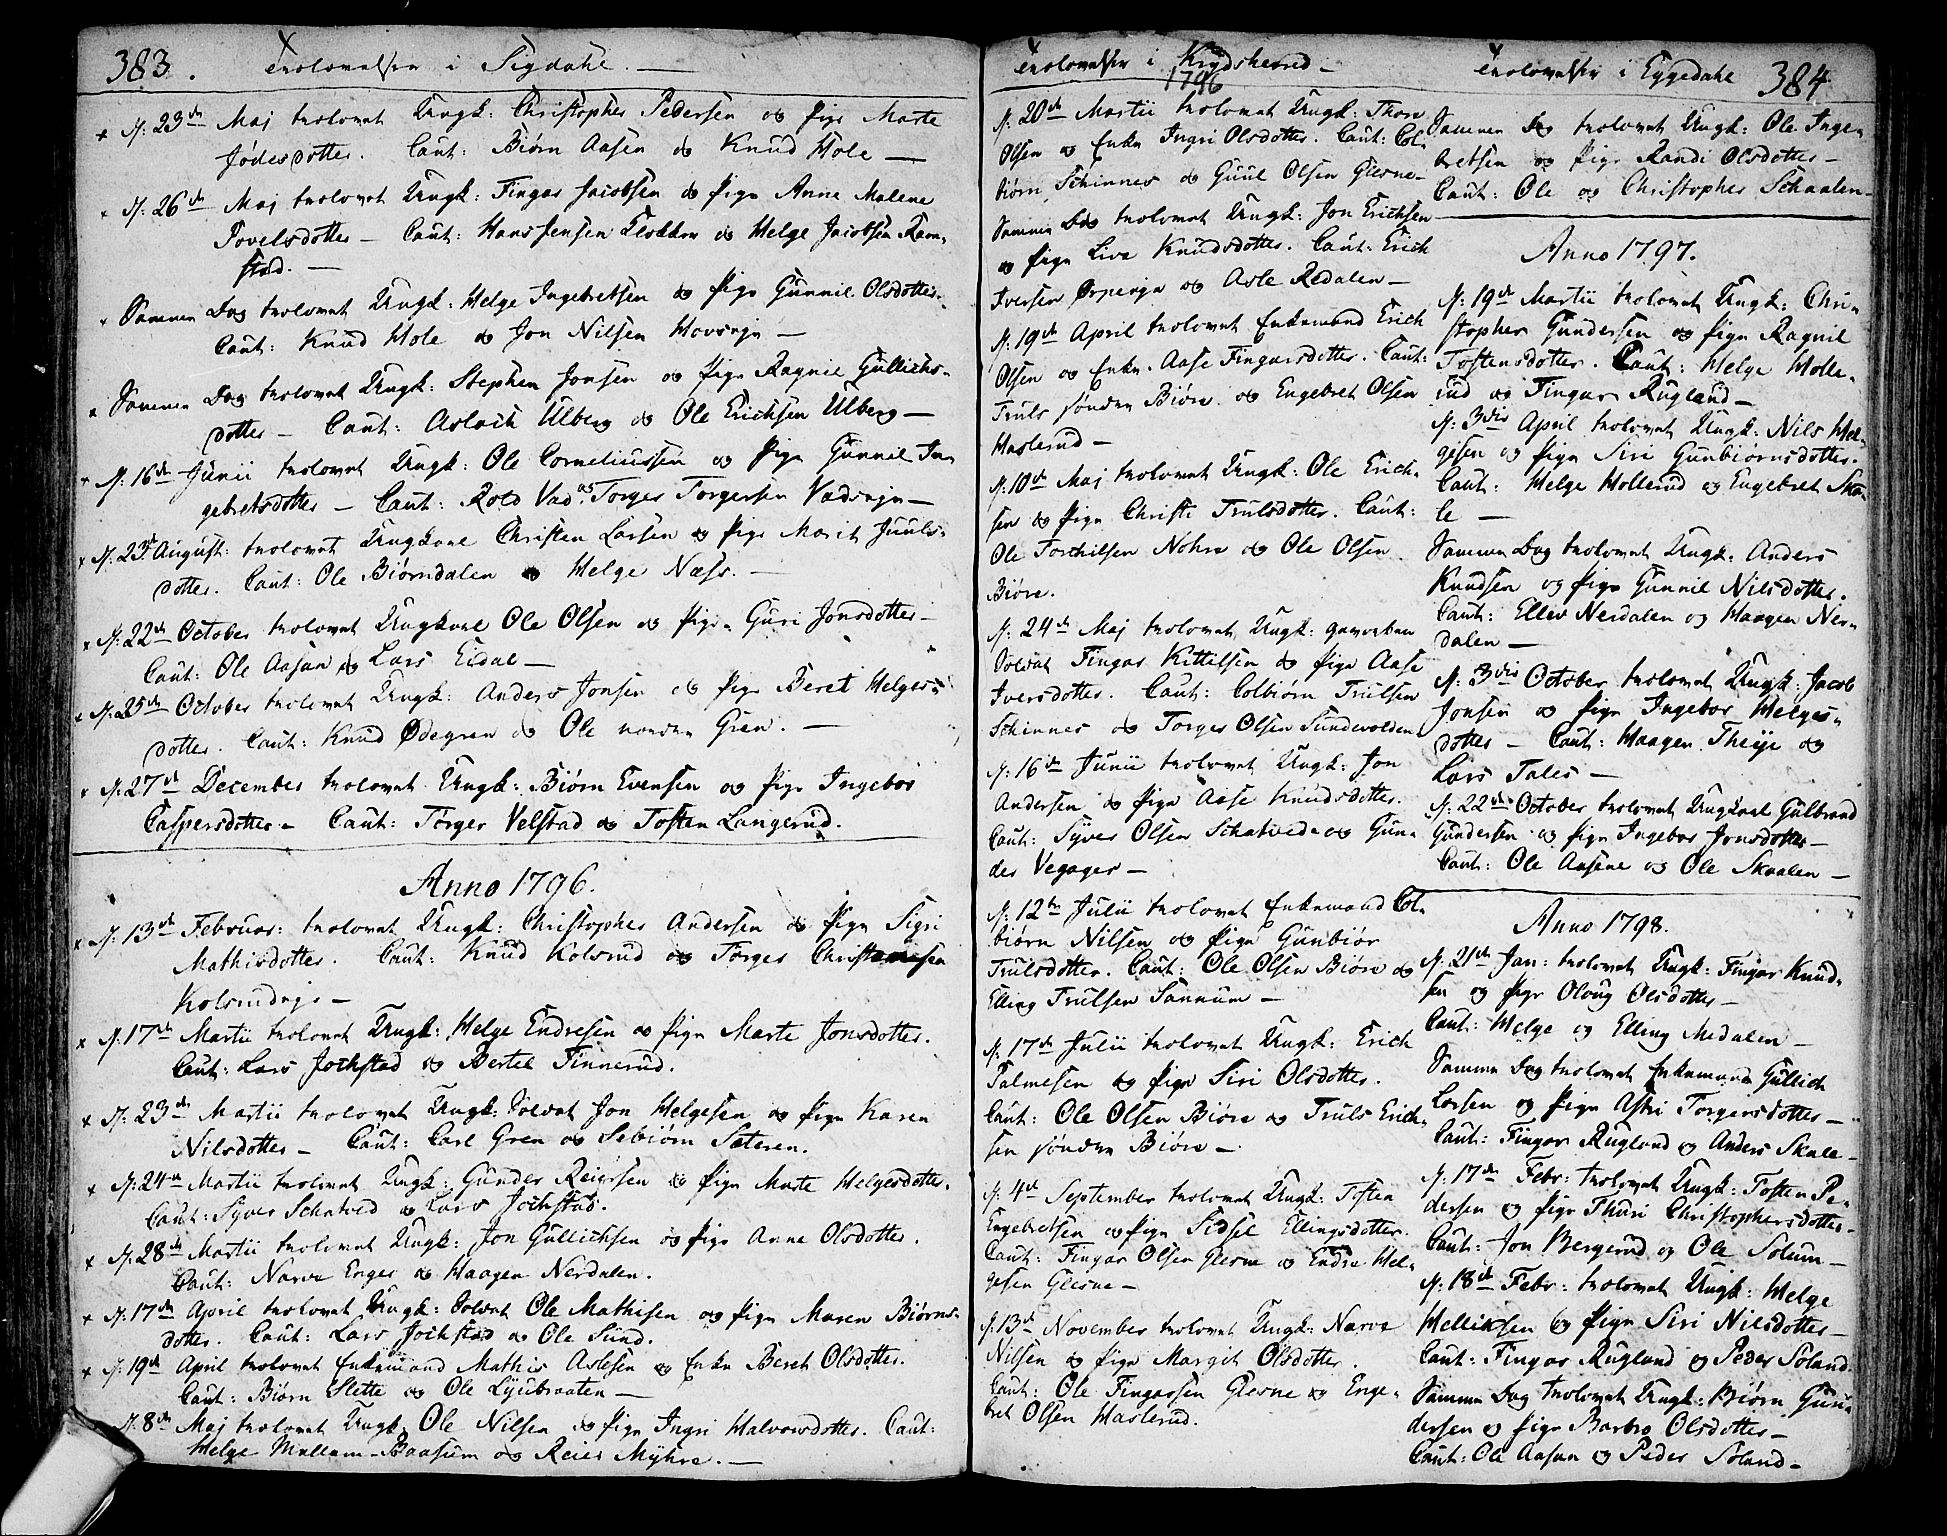 383. Trolovelser i Sigdahl. —
× d: 23de Maj trolovet Ungk: Christopher Pedersen og Pige Marte
Jødesdotter. Caut: Biørn Aasen og Knud Hole —
× d: 26de Maj trolovet Ungk: Fingar Jacobsen og Pige Anne Malene
Povelsdotter — Caut: Hans Jensen Klokker og Helge Jacobsen Ram-
stad. —
× Samme Dag trolovet Ungk: Helge Ingebretsen og Pige Gunnil Olsdotter.
Caut: Knud Hole og Jon Nilsen Hovseje —
× Samme Dag trolovet Ungk: Stephen Jonsen og Pige Ragnil Gullichs-
dotter — Caut: Aslach Ulberg og Ole Erichsen Ulberg —
× d: 16de Junii trolovet Ungk: Ole Corneliussen og Pige Gunnil In-
gebretsdotter — Caut: Rold Vad og Torger Torgersen Vadseje —
× d: 23de August: trolovet Ungkarl Christen Larsen og Pige Marit Juuls-
dotter. Caut: Ole Biørndalen og Helge Næss. —
× d: 22de October trolovet Ungkarl Ole Olsen og Pige Guri Jonsdotter —
Caut: Ole Aasan og Lars Eidal —
× d: 25de October trolovet Ungk: Anders Jonsen og Pige Beret Helges-
dotter. Caut: Knud Ødegren og Ole norden Gren. —
× d: 27de December trolovet Ungk: Biørn Evensen og Pige Ingebor
Caspersdotter — Caut: Torger Velstad og Tosten Langerud.
Anno 1796.
× d: 13de Februar: trolovet Ungk: Christopher Andersen og Pige Sigri
Mathisdotter. Caut: Knud Kolsrud og Torger Christensen
Kolsrudeje —
× d: 17de Martii trolovet Ungk: Helge Endresen og Pige Marte Jonsdotter.
Caut: Lars Jochstad og Bertel Finnerud.
× d: 23de Martii trolovet Ungk: Soldat Jon Helgesen og Pige Karen
Nilsdotter — Caut: Carl Gren og Sebiørn Sæteren.
× d: 24de Martii trolovet Ungk: Gunder Reiersen og Pige Marte Helgesdotter.
Caut: Syver Schatved og Lars Jochstad.
× d: 28de Martii trolovet Ungk: Jon Gullichsen og Pige Anne Olsdotter.
Caut: Narve Enger og Haagen Nerdalen.
× d: 17de April trolovet Ungk: Soldat Ole Mathisen og Pige Maren Biørns-
dotter. Caut: Lars Jochstad og Ole Lund.
× d: 19de April trolovet Enkemand Mathis Aslesen og Enke Beret Olsdotter.
Caut: Biørn Slette og Ole Lyubraaten —
d: 8de Maj trolovet Ungk: Ole Nilsen og Pige Ingri Halvorsdotter. Caut:
Helge Mellem-Baasum og Reier Myhre. —
Trolovelser i Krydsherred —
1796
d: 20de Martii trolovet Ungk: Thore
Olsen og Enke Ingri Olsdotter. Caut: Col-
biørn Schinnes og Guul Olsen Glesne —
Samme Dag trolovet Ungk: Jon Erichsen
og Pige Live Knudsdotter. Caut: Erich
Iversen Ørpeneje og Asle Redalen —
d: 19de April trolovet Enkemand Erich
Olsen og Enke Aase Fingarsdotter. Caut:
Truls sønden Biøre og Engebret Olsen
Haslerud —
d: 10de Maj trolovet Ungk: Ole Erich-
sen og Pige Christi Trulsdotter. Caut:
Ole Torchilsen Nohre og Ole Olsen
Biøre.
d: 24de Maj trolovet Ungk: gevorben
Soldat Fingar Kittilsen og Pige Aase
Iversdotter. Caut: Colbiørn Trulsen
Schinnes og Torger Olsen Sundvolden
d: 16de Junii trolovet Ungk: Jon
Andersen og Pige Aase Knudsdotter.
Caut: Syver Olsen Schatvedt og Gun-
der Vegager —
d: 12te Julii trolovet Enkemand Col-
biørn Nilsen og Pige Gunbiør
Trulsdotter. Caut: Ole Olsen Biøre og
Elling Trulsen Sannum —
d: 17de Julii trolovet Ungk: Erich
Palmesen og Pige Siri Olsdotter.
Caut: Ole Olsen Biøre og Truls Erich-
sen sønden Biøre —
d: 4de September trolovet Ungk: Tosten
Engebretsen og Pige Sidsel Ellingsdotter.
Caut: Fingar Olsen Glesne og Endre Hel-
gesen Glesne —
d: 13de November trolovet Ungk: Narve
Nilsen og Pige Margit Olsdotter.
Caut: Ole Fingarsen Glesne og Enge-
bret Olsen Haslerud.
Trolovelser i Eggedahl 384
Samme Dag trolovet Ungk: Ole Inge-
bretsen og Pige Randi Olsdotter —
Caut: Ole og Christopher Schaalen —
Anno 1797.
d: 19de Martii trolovet Ungk: Chri-
stopher Gundersen og Pige Ragnil
Tostensdotter. Caut: Helge Holle-
rud og Fingar Rugland —
d: 3die April trolovet Ungk: Nils Hel-
gesen og Pige Siri Gunbiørnsdotter.
Caut: Helge Hollerud og Engebret Ska-
le —
Samme Dag trolovet Ungk: Anders
Knudsen og Pige Gunnil Nilsdotter.
Caut: Ellev Nerdalen og Haagen Ner-
dalen —
d: 3die October trolovet Ungk: Jacob
Jonsen og Pige Ingebor Helges-
dotter — Caut: Haagen Theije og
Lars Tales —
d: 22de October trolovet Ungkarl Gulbrand
Gundersen og Pige Ingebor Jonsdotter —
Caut: Ole Aasene og Ole Skaalen —
Anno 1798.
d: 21de Jan: trolovet Ungk: Fingar Knud-
sen og Pige Oloug Olsdotter —
Caut: Helge og Elling Medalen —
Samme Dag trolovet Enkemand Gullich
Larsen og Pige Astri Torgersdotter —
Caut: Fingar Rugland og Anders Skale —
d: 17de Febr: trolovet Ungk: Tosten Pe-
dersen og Pige Thuri Christophersdotter —
Caut: Jon Bergerud og Ole Solum —
d: 18de Febr: trolovet Ungk: Helge
Helliksen og Pige Siri Nilsdotter —
Caut: Fingar Rugland og Peder Soland
Samme Dag trolovet Ungk: Biørn Gun-
dersen og Pige Barbro Olsdotter —
Caut: Ole Aasan og Peder Soland —